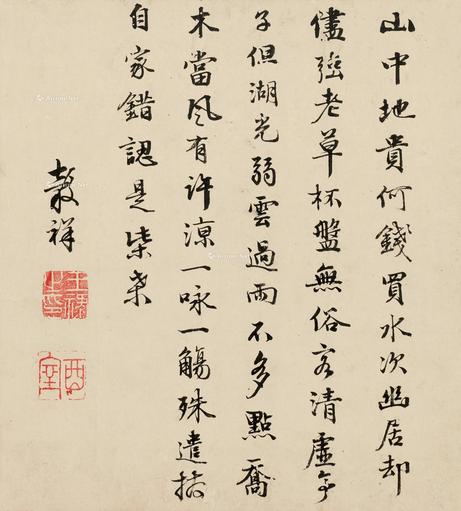 山中地貴何錢買水次幽居却
儘強老草杯盤無俗客清虛亭
子但湖光弱雲過雨不多點喬
木當風有許涼一咏一觴殊遣
自家錯認是柴桒
穀祥
王祿之印
酉室